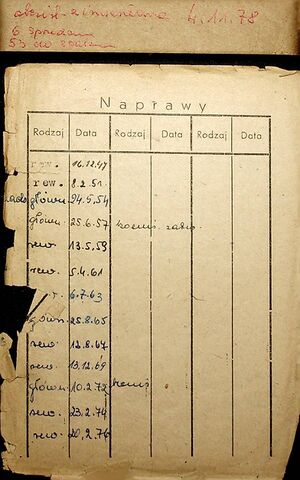 4.11.78
6
53 do
Naprawy
Rodzaj Data Rodzaj Data Rodzaj Data
rew. 16.12.47
rew. 8.2.51
główn. 24.5.54
główn. 25.6.57
rew. 13.5.59
rew. 5.4.61
6.7.63
główn. 25.8.65
rew. 12.8.67
rew. 13.12.69
główn. 10.2.72
rew. 23.2.74
rew. 20.2.76